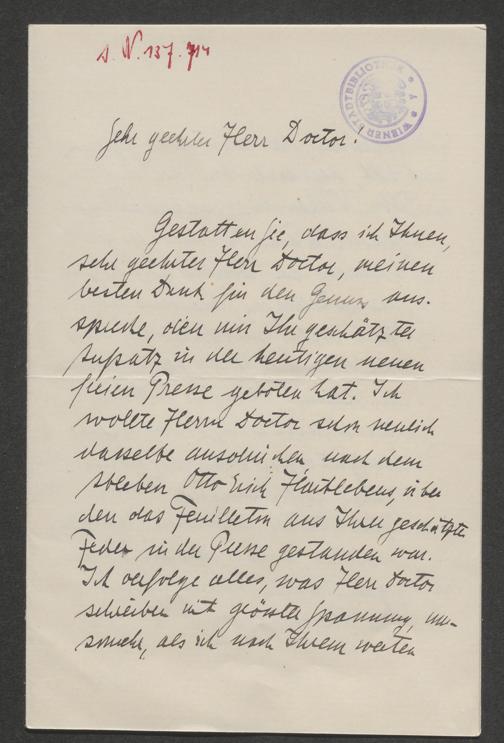 J. N. 137.714
WIENER STADTBIBLIOTHEK
Sehr geehrter Herr Doctor!
Gestatten Sie, dass ich Ihnen,
sehr geehrter Herr Doctor, meinen
besten Dank für den Genuss aus-
spreche, den mir Ihr geschätzter
Aufsatz in der heutigen neuen
freien Presse geboten hat. Ich
wollte Herrn Doctor schon neulich
dasselbe ausdrücken nach dem
Ableben Otto Erich Hartlebens, über
den das Feuilleton aus Ihrer geschätzten
Feder in der Presse gestanden war.
Ich verfolge alles, was Herr Doctor
schreiben mit grösster Spannung, um-
somehr, als ich nach Ihrem werten